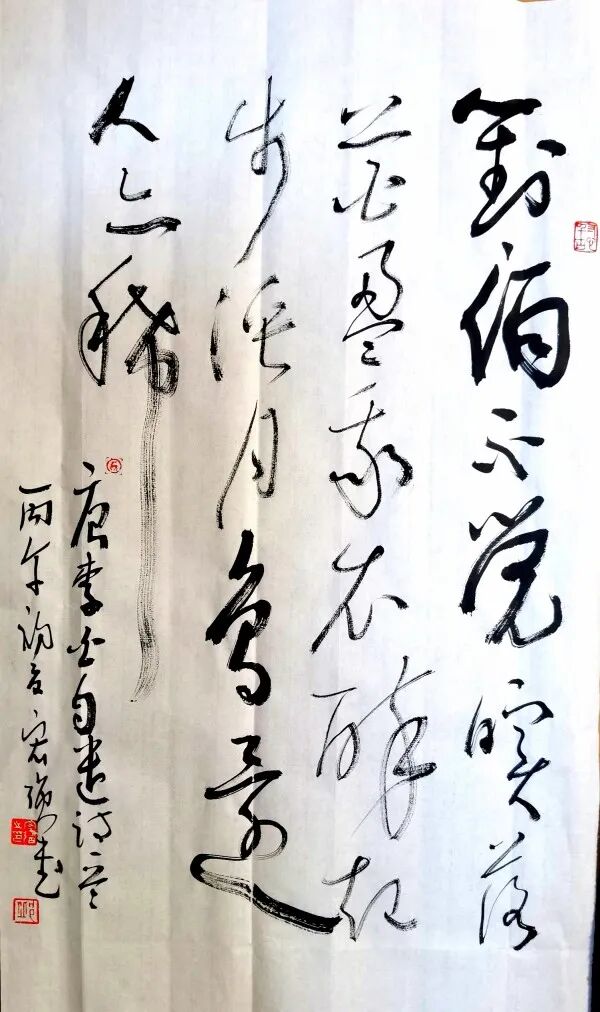 對酒不覺暝落
花盈我衣醉起
步溪月鳥還
人亦稀
唐李白自遣詩一首
丙午初夏宏強書